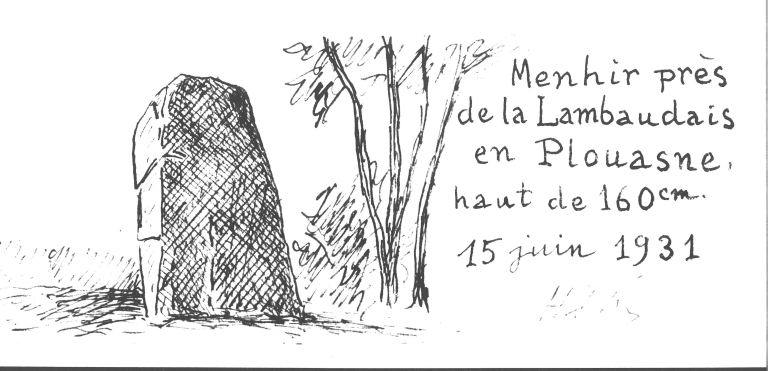 Menhir près
de la Lambaudais
en Plouasne,
haut de 160cm.
15 juin 1931